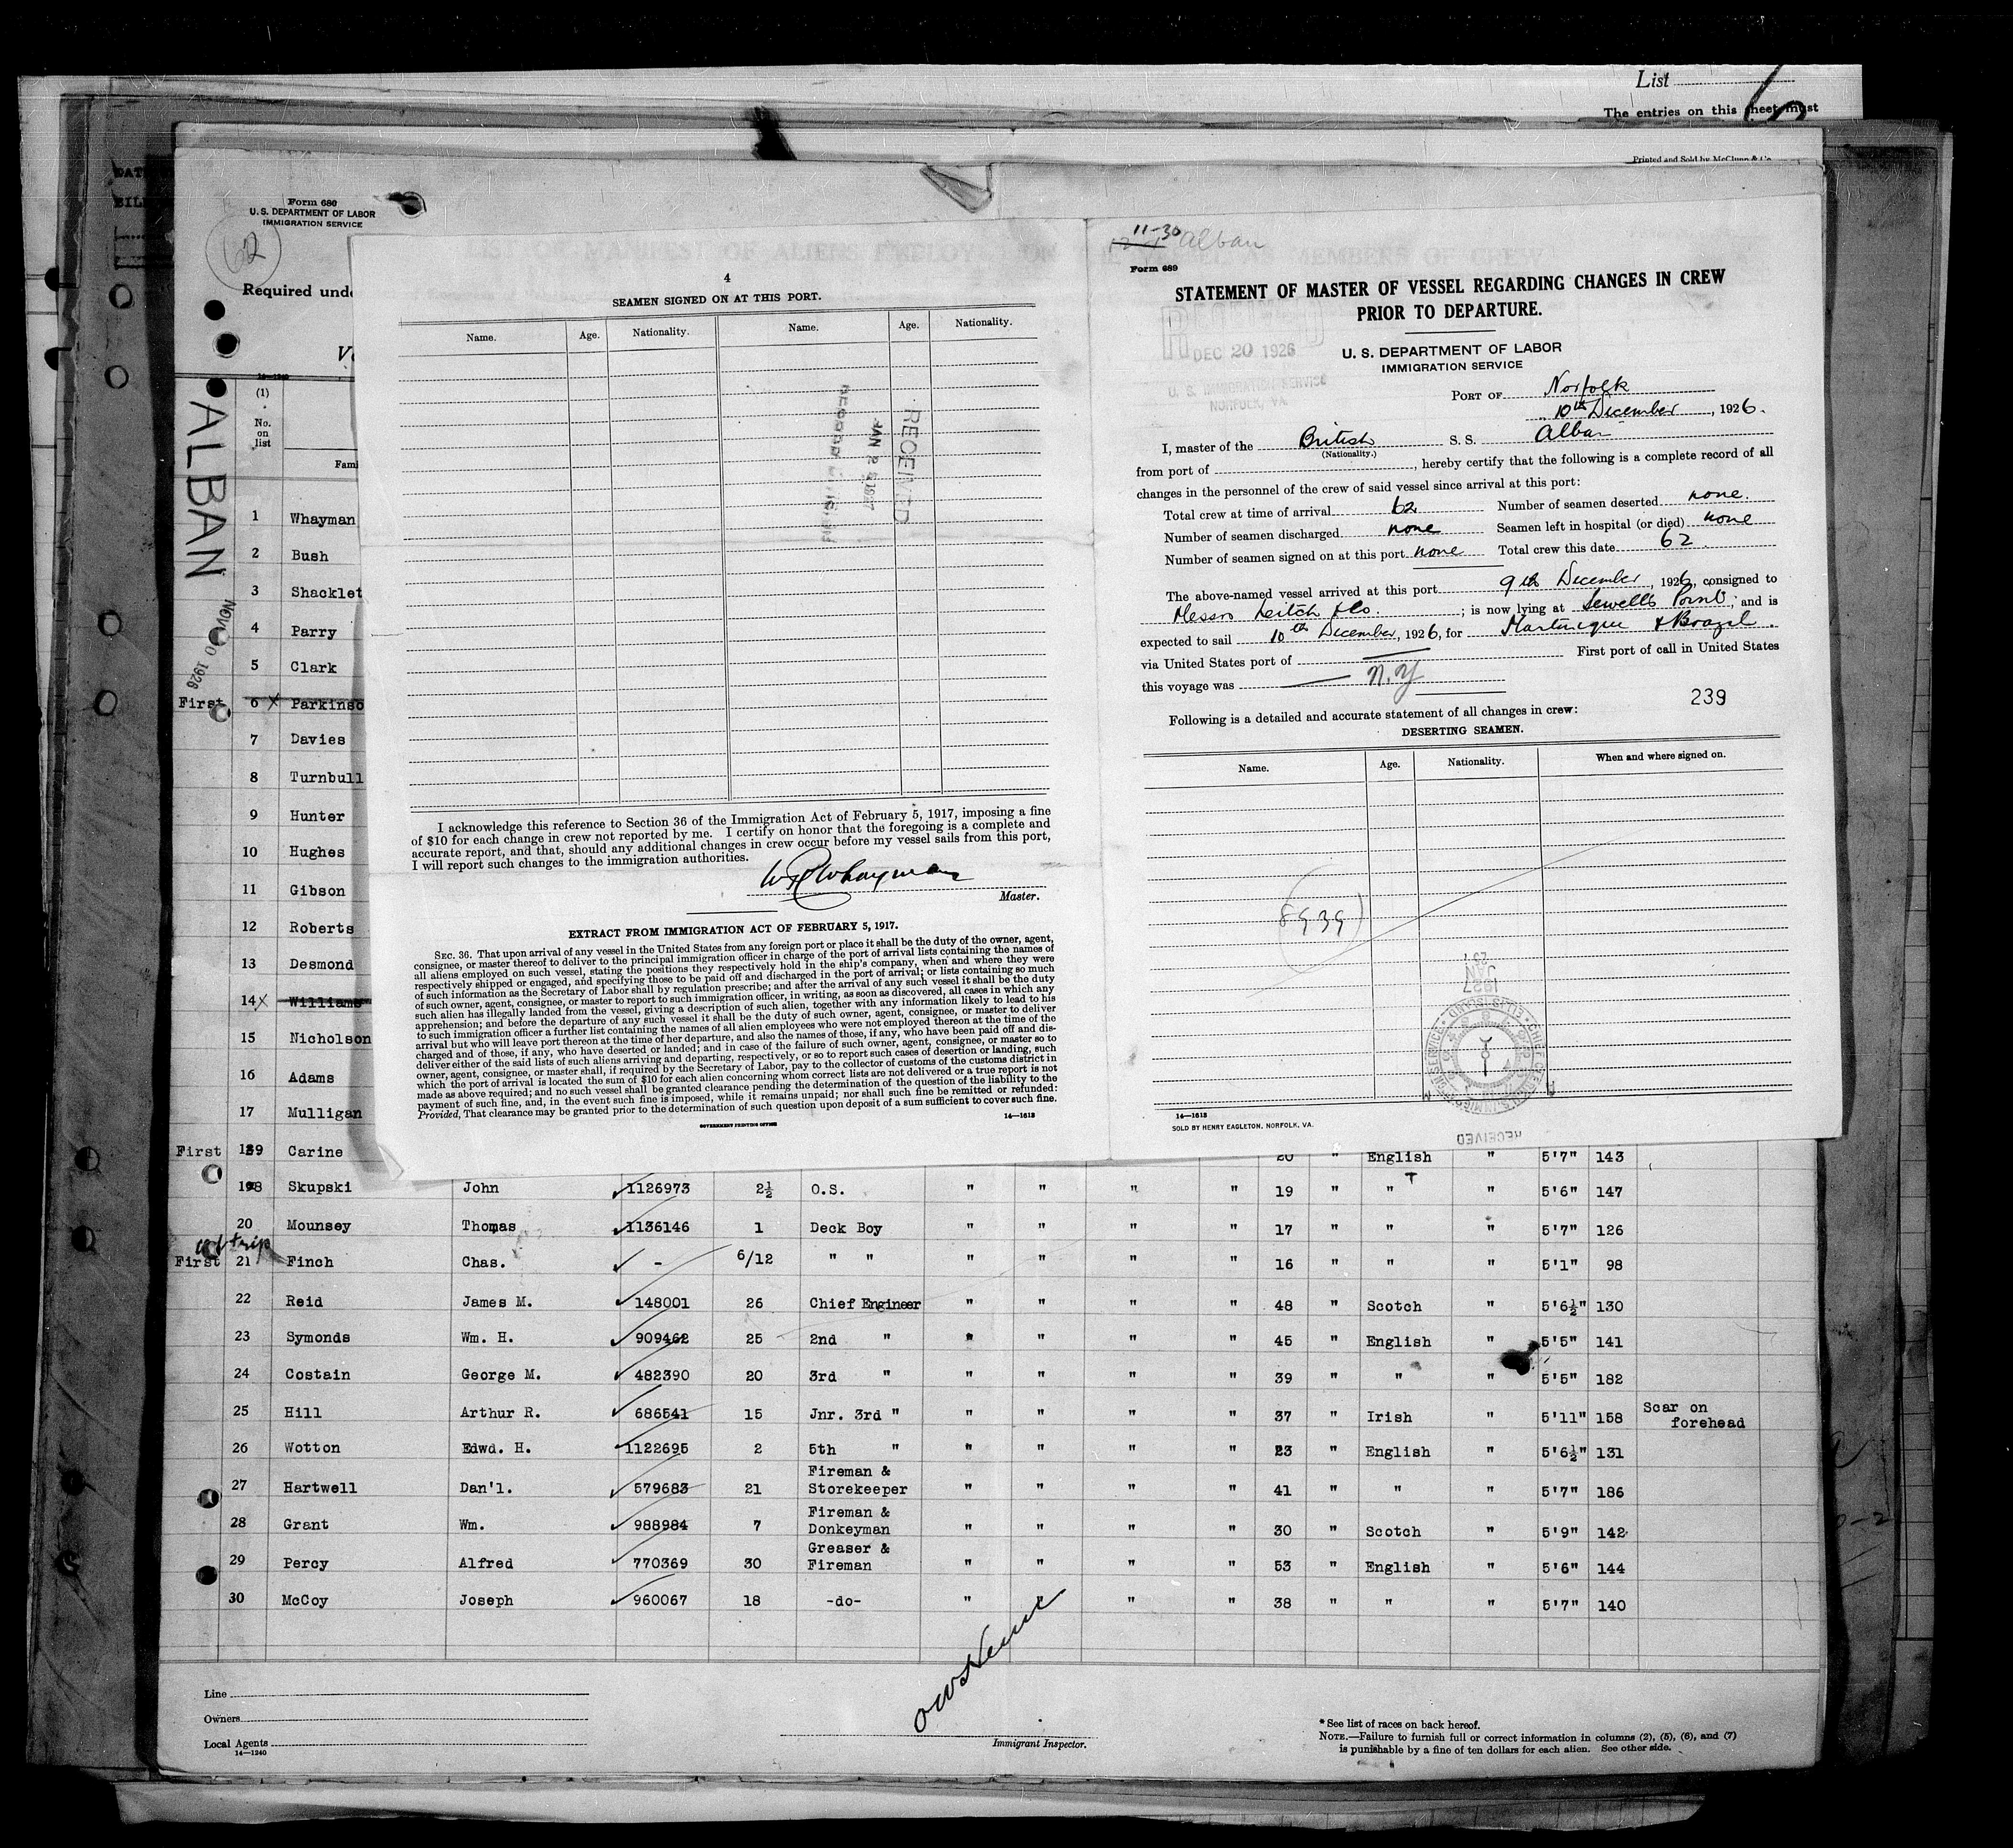 List
The entries on this sheet must
Printed and Sold by McClunn & Co
Form 680
U. S. DEPARTMENT OF LABOR
IMMIGRATION SERVICE
62
Required unde
14—1240
ALBAN
NOV 30 1926
(1)
No.
on
list
Fami
1 Whayman
2 Bush
3 Shacklet
4 Parry
5 Clark
First 6 x Parkinso
7 Davies
8 Turnbull
9 Hunter
10 Hughes
11 Gibson
12 Roberts
13 Desmond
14 x Williams
15 Nicholson
16 Adams
17 Mulligan
4
SEAMEN SIGNED ON AT THIS PORT.
Name. Age. Nationality. Name. Age. Nationality.
RECEIVED
JAN 2 1927
I acknowledge this reference to Section 36 of the Immigration Act of February 5, 1917, imposing a fine
of $10 for each change in crew not reported by me. I certify on honor that the foregoing is a complete and
accurate report, and that, should any additional changes in crew occur before my vessel sails from this port,
I will report such changes to the immigration authorities.
W R Whayman
Master.
EXTRACT FROM IMMIGRATION ACT OF FEBRUARY 5, 1917.
SEC. 36. That upon arrival of any vessel in the United States from any foreign port or place it shall be the duty of the owner, agent,
consignee, or master thereof to deliver to the principal immigration officer in charge of the port of arrival lists containing the names of
all aliens employed on such vessel, stating the positions they respectively hold in the ship's company, when and where they were
respectively shipped or engaged, and specifying those to be paid off and discharged in the port of arrival; or lists containing so much
of such information as the Secretary of Labor shall by regulation prescribe; and after the arrival of any such vessel it shall be the duty
of such owner, agent, consignee, or master to report to such immigration officer, in writing, as soon as discovered, all cases in which any
such alien has illegally landed from the vessel, giving a description of such alien, together with any information likely to lead to his
apprehension; and before the departure of any such vessel it shall be the duty of such owner, agent, consignee, or master to deliver
to such immigration officer a further list containing the names of all alien employees who were not employed thereon at the time of the
arrival but who will leave port thereon at the time of her departure, and also the names of those, if any, who have been paid off and dis-
charged and of those, if any, who have deserted or landed; and in case of the failure of such owner, agent, consignee, or master so to
deliver either of the said lists of such aliens arriving and departing, respectively, or so to report such cases of desertion or landing, such
owner, agent, consignee, or master, shall, if required by the Secretary of Labor, pay to the collector of customs of the customs district in
which the port of arrival is located the sum of $10 for each alien concerning whom correct lists are not delivered or a true report is not
made as above required; and no such vessel shall be granted clearance pending the determination of the question of the liability to the
payment of such fine, and, in the event such fine is imposed, while it remains unpaid; nor shall such fine be remitted or refunded:
Provided, That clearance may be granted prior to the determination of such question upon deposit of a sum sufficient to cover such fine.
14—1613
GOVERNMENT PRINTING OFFICE
11-30 Alban
Form 689
STATEMENT OF MASTER OF VESSEL REGARDING CHANGES IN CREW
PRIOR TO DEPARTURE.
DEC 20 1926
U. S. IMMIGRATION SERVICE
NORFOLK, VA.
U. S. DEPARTMENT OF LABOR
IMMIGRATION SERVICE
PORT OF Norfolk
10th December, 1926.
I, master of the British S. S. Alban
(Nationality.)
from port of , hereby certify that the following is a complete record of all
changes in the personnel of the crew of said vessel since arrival at this port:
Total crew at time of arrival 62 Number of seamen deserted none.
Number of seamen discharged none Seamen left in hospital (or died) none
Number of seamen signed on at this port none Total crew this date 62.
The above-named vessel arrived at this port 9th December, 1926, consigned to
Messrs Leitch & Co. ; is now lying at Sewells Point; and is
expected to sail 10th December, 1926, for Martinique & Brazil.
via United States port of — First port of call in United States
this voyage was — N.Y
239
Following is a detailed and accurate statement of all changes in crew:
DESERTING SEAMEN.
Name. Age. Nationality. When and where signed on.
JAN
1927
14—1613
SOLD BY HENRY EAGLETON, NORFOLK, VA.
RECEIVED
First 189 Carine 20 " English " 5'7" 143
198 Skupski John 1126973 2½ O.S. " " " " 19 " " " 5'6" 147
20 Mounsey Thomas 1136146 1 Deck Boy " " " " 17 " " " 5'7" 126
1st trip
First 21 Finch Chas. - 6/12 " " " " " " 16 " " " 5'1" 98
22 Reid James M. 148001 26 Chief Engineer " " " " 48 " Scotch " 5'6½" 130
23 Symonds Wm. H. 909462 25 2nd " " " " " 45 " English " 5'5" 141
24 Costain George M. 482390 20 3rd " " " " " 39 " " " 5'5" 182
25 Hill Arthur R. 686541 15 Jnr. 3rd " " " " " 37 " Irish " 5'11" 158 Scar on forehead
26 Wotton Edwd. H. 1122695 2 5th " " " " " 23 " English " 5'6½" 131
27 Hartwell Dan'l. 579683 21 Fireman & Storekeeper " " " " 41 " " " 5'7" 186
28 Grant Wm. 988984 7 Fireman & Donkeyman " " " " 30 " Scotch " 5'9" 142
29 Percy Alfred 770369 30 Greaser & Fireman " " " " 53 " English " 5'6" 144
30 McCoy Joseph 960067 18 -do- " " " " 38 " " " 5'7" 140
Line
Owners
Local Agents
14—1240
Immigrant Inspector.
* See list of races on back hereof.
NOTE.—Failure to furnish full or correct information in columns (2), (5), (6), and (7)
is punishable by a fine of ten dollars for each alien. See other side.